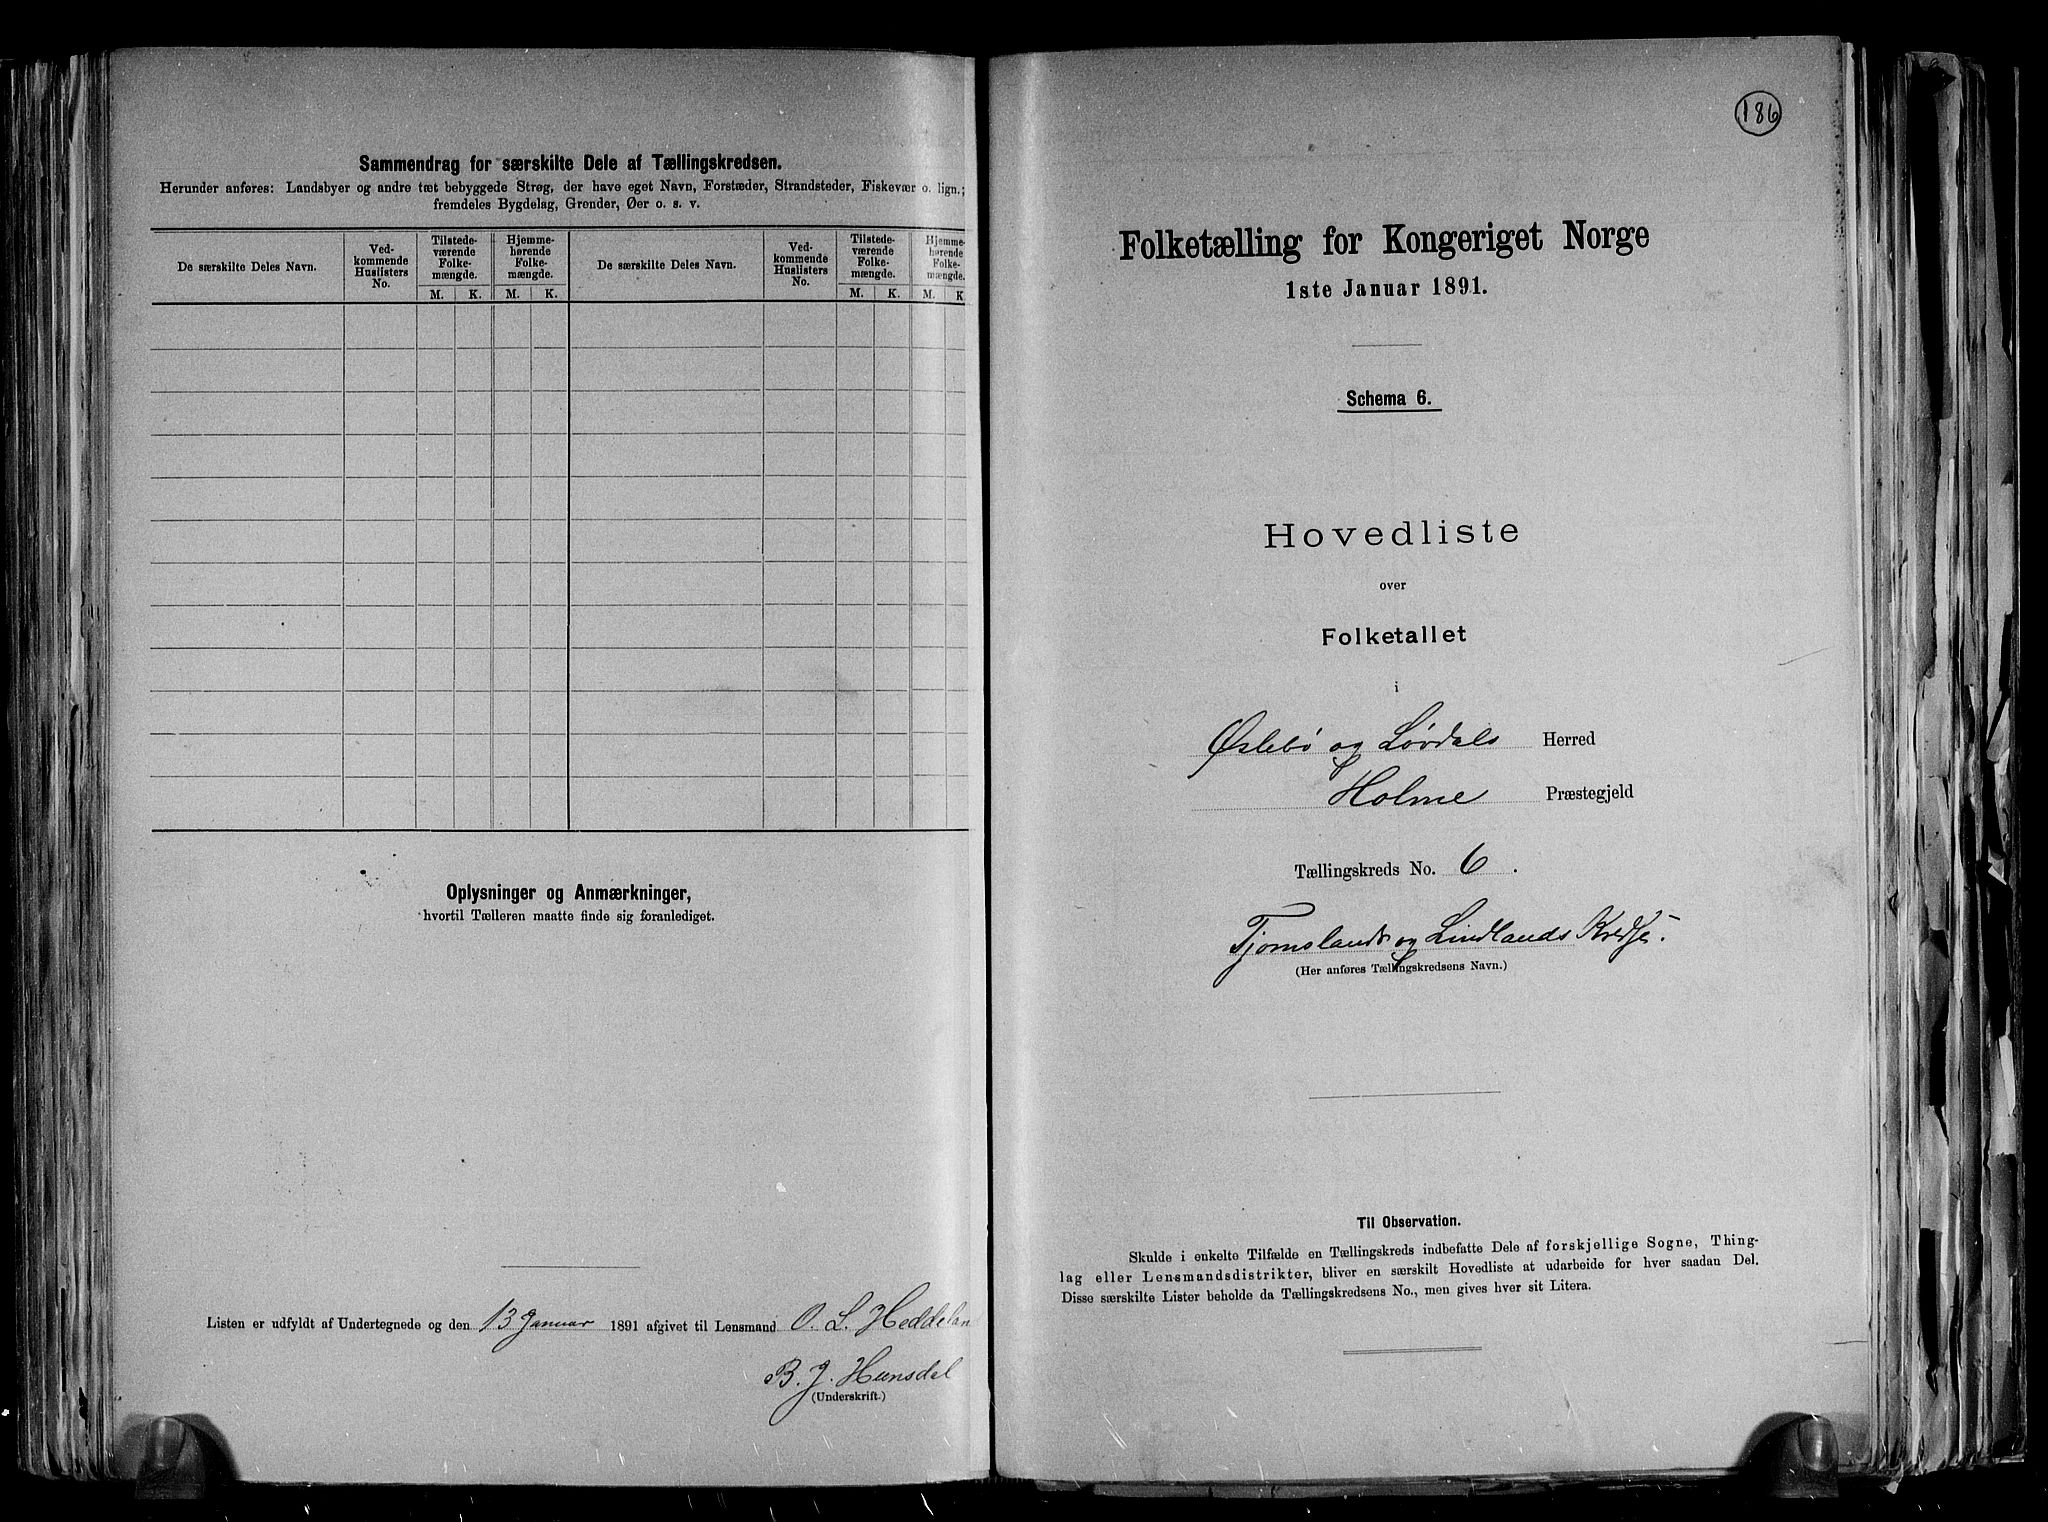 Sammendrag for særskilte Dele af Tællingskredsen.
Herunder anføres: Landsbyer og andre tæt bebyggede Strøg, der have eget Navn, Forstæder, Strandsteder, Fiskevær o. lign.;
fremdeles Bygdelag, Grender, Øer o. s. v.
De særskilte Deles Navn.
Ved-
kommende
Huslisters
No.
Tilstede-
værende
Folke-
mængde.
Hjemme-
hørende
Folke-
mængde.
De særskilte Deles Navn.
Ved-
kommende
Huslisters
No.
Tilstede-
værende
Folke-
mængde.
Hjemme-
hørende
Folke-
mængde.
M. K. M. K. M. K. M. K.
Oplysninger og Anmærkninger,
hvortil Tælleren maatte finde sig foranlediget.
Listen er udfyldt af Undertegnede og den 13 Januar 1891 afgivet til Lensmand O. L. Heddelan
B. J. Hunsdal
(Underskrift.)
186
Folketælling for Kongeriget Norge
1ste Januar 1891.
Schema 6.
Hovedliste
over
Folketallet
i
Øslebø og Løvdals Herred
Holme Præstegjeld
Tællingskreds No. 6.
Tjomslands og Lindlands Kredse.
(Her anføres Tællingskredsens Navn.)
Til Observation.
Skulde i enkelte Tilfælde en Tællingskreds indbefatte Dele af forskjellige Sogne, Thing-
lag eller Lensmandsdistrikter, bliver en særskilt Hovedliste at udarbeide for hver saadan Del.
Disse særskilte Lister beholde da Tællingskredsens No., men gives hver sit Litera.